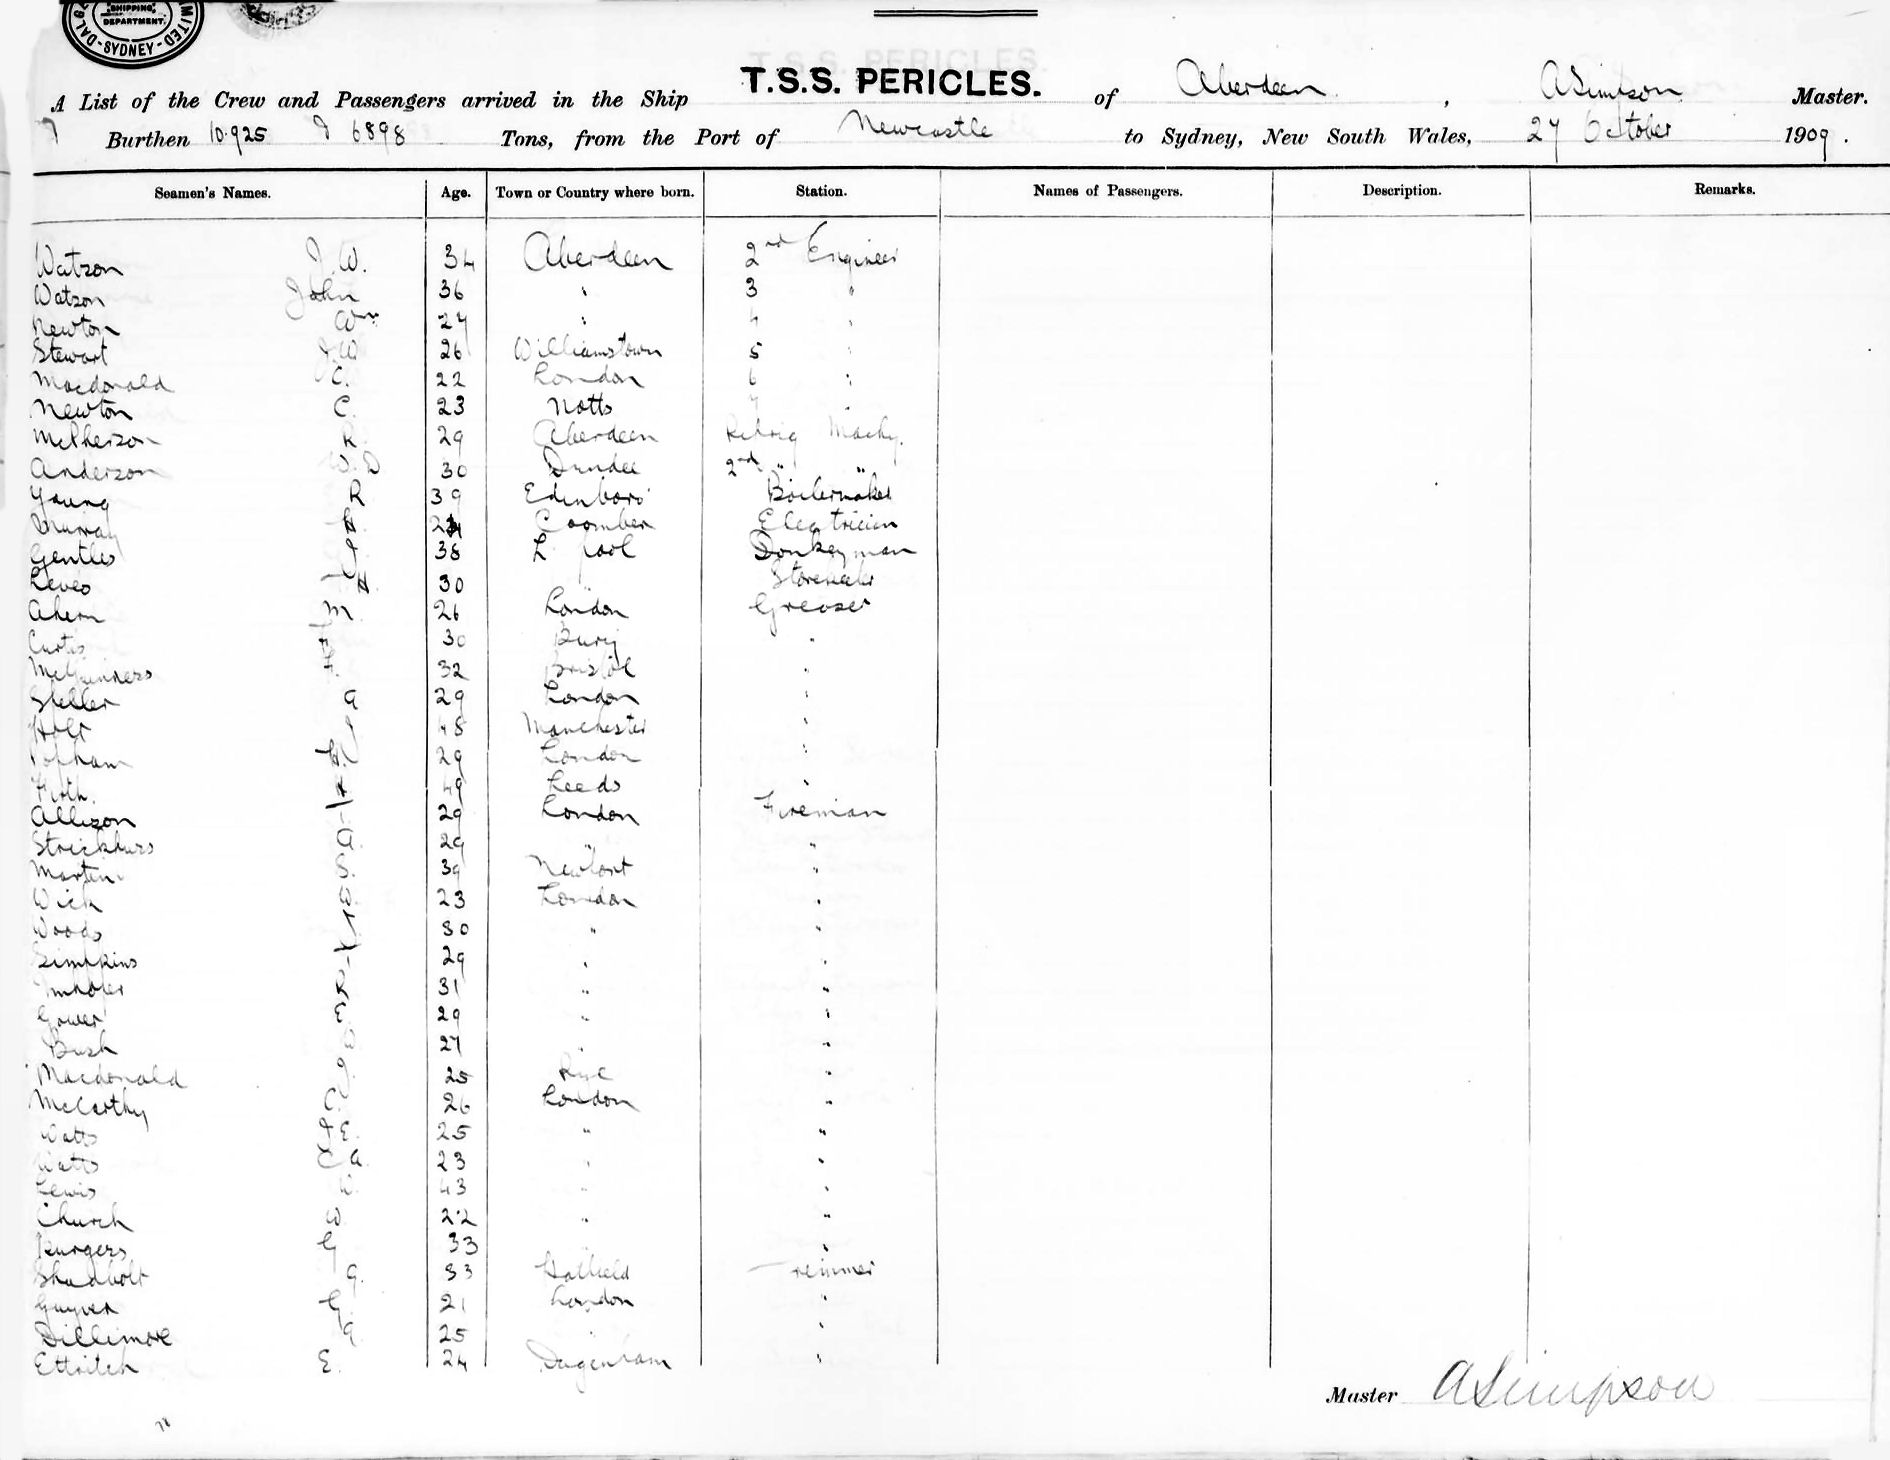 SHIPPING
DEPARTMENT.
DALG
MITED
SYDNEY
T.S.S. PERICLES.
A List of the Crew and Passengers arrived in the Ship T.S.S. PERICLES. of Aberdeen, ASimpson Master.
Burthen 10.925 & 6898 Tons, from the Port of Newcastle to Sydney, New South Wales, 27 October 1909.
Seamen's Names. Age. Town or Country where born. Station. Names of Passengers. Description. Remarks.
Watson J. W. 34 Aberdeen 2nd Engineer
Watson John 36 " 3 "
Newton Wm 27 " 4 "
Stewart J W 26 Williamstown 5 "
Macdonald C. 22 London 6 "
Newton C. 23 Notts 7
McPherson R 29 Aberdeen Refrig Machy.
Anderson W. D 30 Dundee 2nd " "
Young R 39 Edinboro' Boilermaker
Murray 24 Coomber Electrician
Gentles 38 L'pool Donkeyman
Leves 30 Storekeeper
Ahern M 26 London Greaser
Curtis 30 Bury "
McGuinness 32 Bristol "
Sheller A 29 London "
Holt 48 Manchester "
Popham 29 London "
Firth. 49 Leeds "
Allison 29 London Fireman
29 " "
Martin S. 39 Newport "
Wick W 23 London "
Woods 30 " "
Simpkins 29 " "
Imhofer R 31 " "
Gower E 29 " "
Bush 27 " "
Macdonald 25 Rye
McCarthy C. 26 London "
Watts J E. 25 " "
Watts C A. 23 " "
Lewis 43 " "
Church W 22 " "
Burgess G 33 "
Shadbolt G. 33 Hatfield Trimmer
Guyver G. 21 London "
Dillimore G 25 " "
Ettritch E. 24 Dagenham "
Master ASimpson